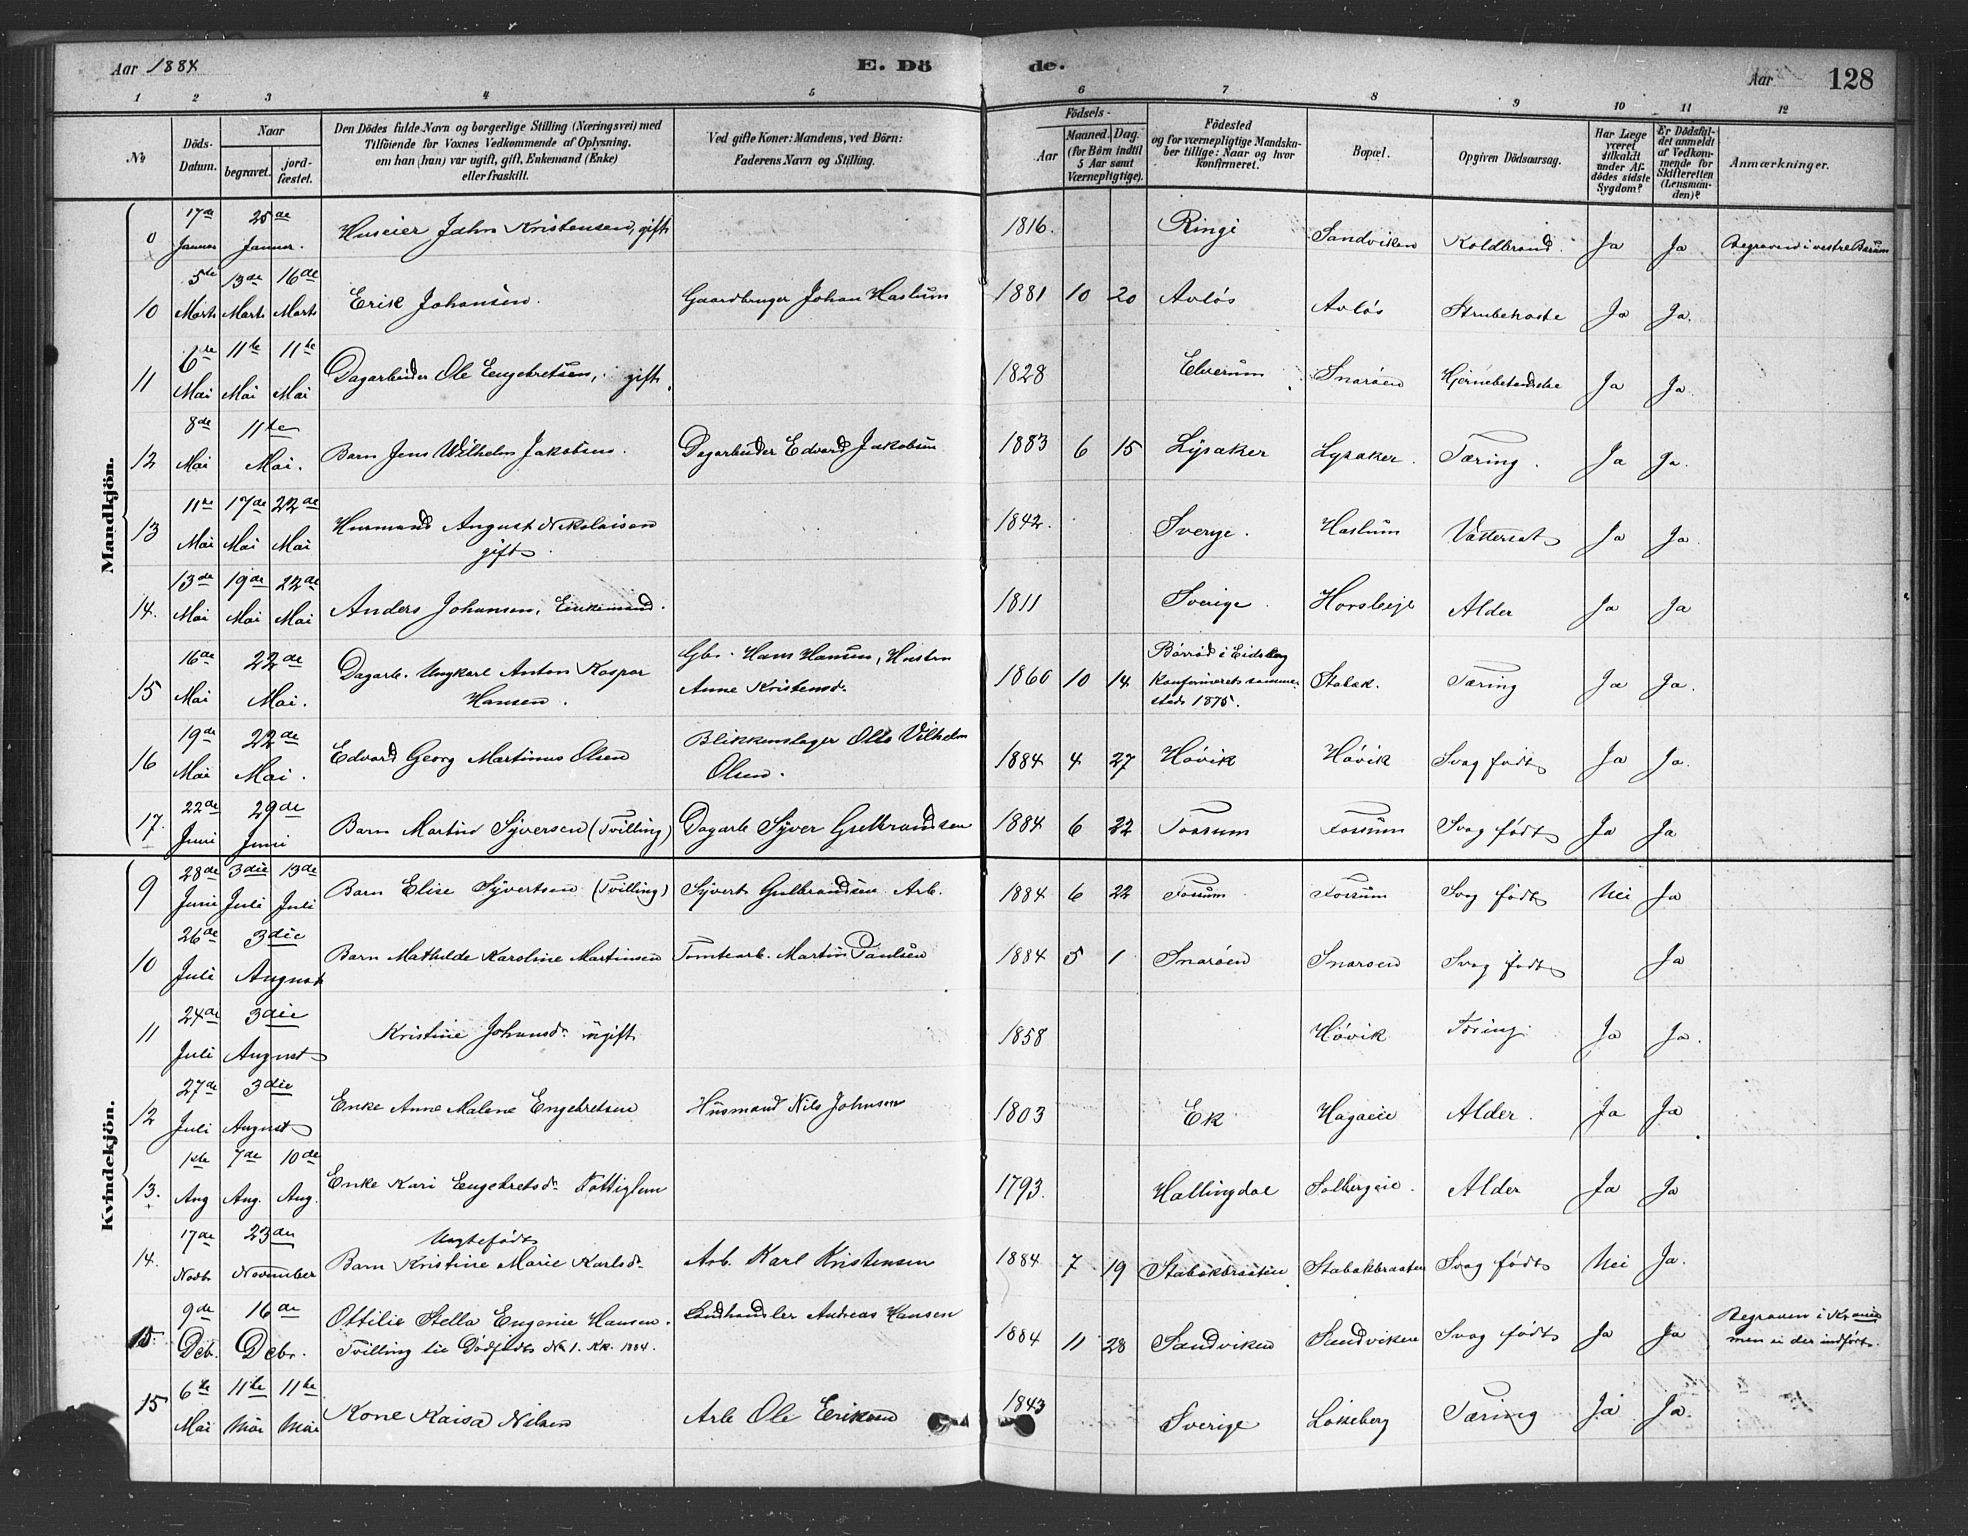 Aar 1884 E. Dö de. Aar 128
1 2 3 4 5 6 7 8 9 10 11 12
No Döds-Datum. Naar begravet. jord-fæstet. Den Dödes fulde Navn og borgerlige Stilling (Næringsvei) med Tilföiende for Voxnes Vedkommende af Oplysning. om han (hun) var ugift, gift, Enkemand (Enke) eller fraskilt. Ved gifte Koner: Mandens, ved Börn: Faderens Navn og Stilling. Födsels- Aar Maaned. Dag. (for Börn indtil 5 Aar samt Værnepligtige). Födested og for værnepligtige Mandska-ber tillige: Naar og hvor Konfirmeret. Bopæl. Opgiven Dödsaarsag. Har Læge været tilkaldt under Af-dödes sidste Sygdom? Er Dödsfal-det anmeldt af Vedkom-mende for Skifteretten (Lensman-den)? Anmærkninger.
Mandkjön.
0 17de Januar 25de Januar. Huseier John Kristensen, gift 1816. Ringi Sandviken Koldbrand. Ja Ja Begraven i vestre Bærum
10 5te Marts 13de Marts 16de Marts Erik Johansen. Gaardbruger Johan Haslum 1881 10 20 Avløs Avløs Strubehoste Ja Ja.
11 6te Mai 11te Mai 11te Mai Dagarbeider Ole Engebretsen, gift. 1828 Elverum Snarøen Hjernebetændelse Ja Ja.
12 8de Mai 11te Mai. Barn Jens Wilhelm Jakobsen. Dagarbeider Edvard Jakobsen 1883 6 15 Lysaker Lysaker. Tæring. Ja Ja.
13 11te Mai 17de Mai 22de Mai Husmand August Nikolaisen gift. 1842. Sverige. Haslum Vattersot Ja Ja.
14. 13de Mai 19de Mai 22de Mai Anders Johansen, Enkemand. 1811 Sverige. Horsleeje Alder Ja Ja
15 16de Mai 22de Mai. Dagarb. Ungkarl Anton Kaspar Hansen. Gbr. Hans Hansen, Hustru Anne Kristensdr 1860 10 14 Børrød i Eidskog Konfirmeret samme-steds 1875. Stabæk. Tæring Ja Ja.
16 19de Mai 22de Mai. Edvard Georg Martinus Olsen Blikkenslager Otto Vilhelm Olsen. 1884 4 27 Høvik Høvik Svag født Ja Ja.
17. 22de Juni 29de Juni Barn Martin Syversen (Tvilling) Dagarb Syver Gulbrandsen 1884 6 22 Fossum Fossum Svag født Ja Ja
Kvindekjön.
9 28de Juni 3die Juli 13de Juli Barn Elise Syvertsen (Tvilling) Syvert Gulbrandsen Arb. 1884 6 22 Fossum Fossum Svag født Nei Ja
10 26de Juli 3die August Barn Mathilde Karoline Martinsen Tomtearb. Martin Paulsen 1884 5 1 Snarøen Snarøen Svag født Ja
11 24de Juli 3die August Kristine Johansdr ugift 1858 Høvik Tæring. Ja Ja.
12 27de Juli 3die August Enke Anne Malene Engebretsen Husmand Nils Johnsen 1803 Ek Hagaeie Alder. Ja Ja
13. 1ste Aug 7de Aug. 10de Aug. Enke Kari Engebretsdr Fattiglem 1793. Hallingdal Solbergeie. Alder Ja Ja
14. 17de Novbr 23de November Uægtefødt Barn Kristine Marie Karlsdr Arb. Karl Kristensen 1884 7 19 Stabækbraaten Stabækbraaten Svag født Nei Ja.
15. 9de Deb. 16de Debr. Ottilie Stella Eugenie Hansen. Tvilling til Dødfødte No 1. KK. 1884. Landhandler Andreas Hansen 1884 11 28 Sandviken Sandviken Svag født Ja Ja Begraven i Kr.ania men ei der indført.
15 6te Mai 11te Mai 11te Mai Kone Kaisa Nilsen Arb Ole Eriksen 1843 Sverige Løkeberg Tæring Ja Ja.